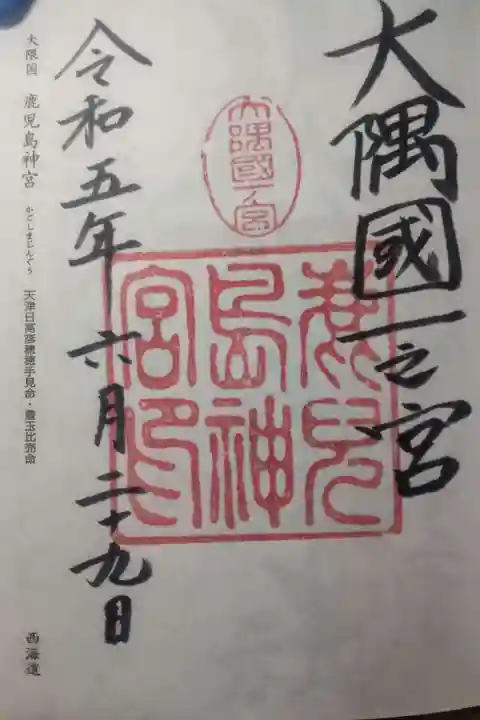 大隅國一之宮
大隅國一ノ宮
鹿児
島神
宮印
令和五年 六月二十九日
大隈国 鹿児島神宮 かごしまじんぐう 天津日高彦穂穂手見命・豊玉比売命
西海道